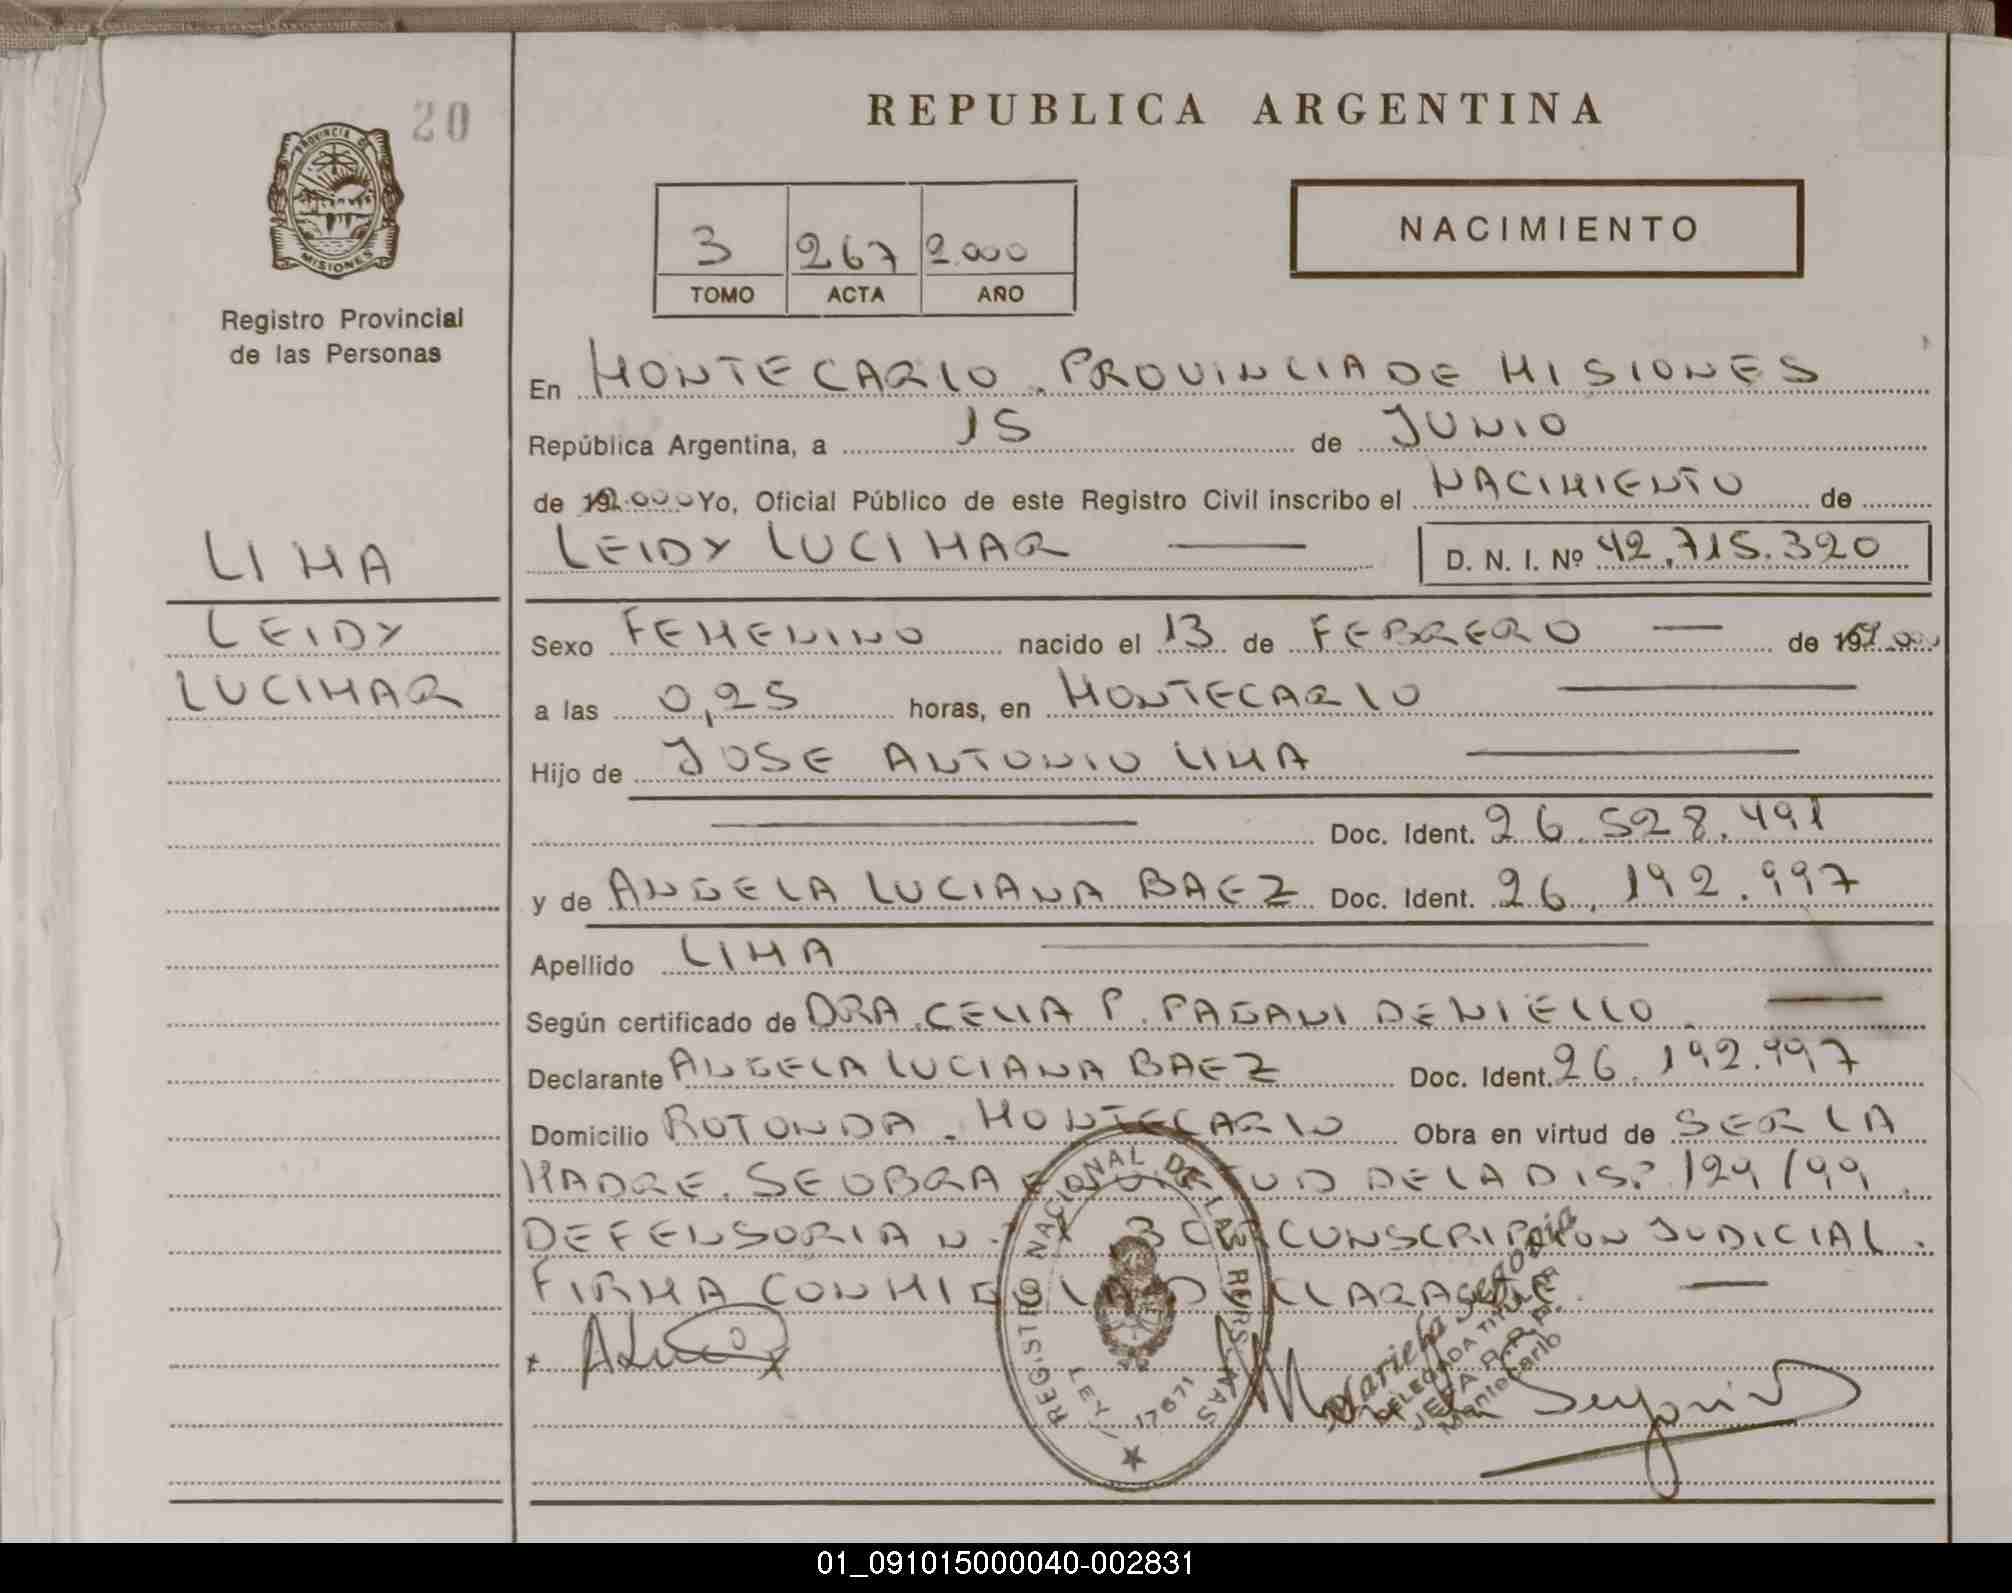 20
PROVINCIA DE
MISIONES
Registro Provincial
de las Personas
LIMA
LEIDY
LUCIMAR
REPUBLICA ARGENTINA
3 267 2.000
TOMO ACTA AÑO
NACIMIENTO
En MONTECARLO. PROVINCIA DE MISIONES
República Argentina, a 15 de JUNIO
de 2.000 Yo, Oficial Público de este Registro Civil inscribo el NACIMIENTO de
LEIDY LUCIMAR D. N. I. Nº 42.715.320
Sexo FEMENINO nacido el 13 de FEBRERO de 2.000
a las 0,25 horas, en MONTECARLO
Hijo de JOSE ANTONIO LIMA
Doc. Ident. 26.528.491
y de ANGELA LUCIANA BAEZ Doc. Ident. 26.192.997
Apellido LIMA
Según certificado de DRA. CELIA P. PAGANI DE NIELLO.
Declarante ANGELA LUCIANA BAEZ Doc. Ident. 26.192.997
Domicilio ROTONDA. MONTECARLO Obra en virtud de SER LA
MADRE. SE OBRA EN VIRTUD DE LA DISP. 129/99
DEFENSORIA N. 3 CIRCUNSCRIPCION JUDICIAL.
FIRMA CONMIGO LA DECLARANTE.
REGISTRO NACIONAL DE LAS PERSONAS
LEY 17671
Mariela Segovia
DELEGADA TITULAR
JEFA R.P.P.
Montecarlo
Mariela Segovia
01_091015000040-002831